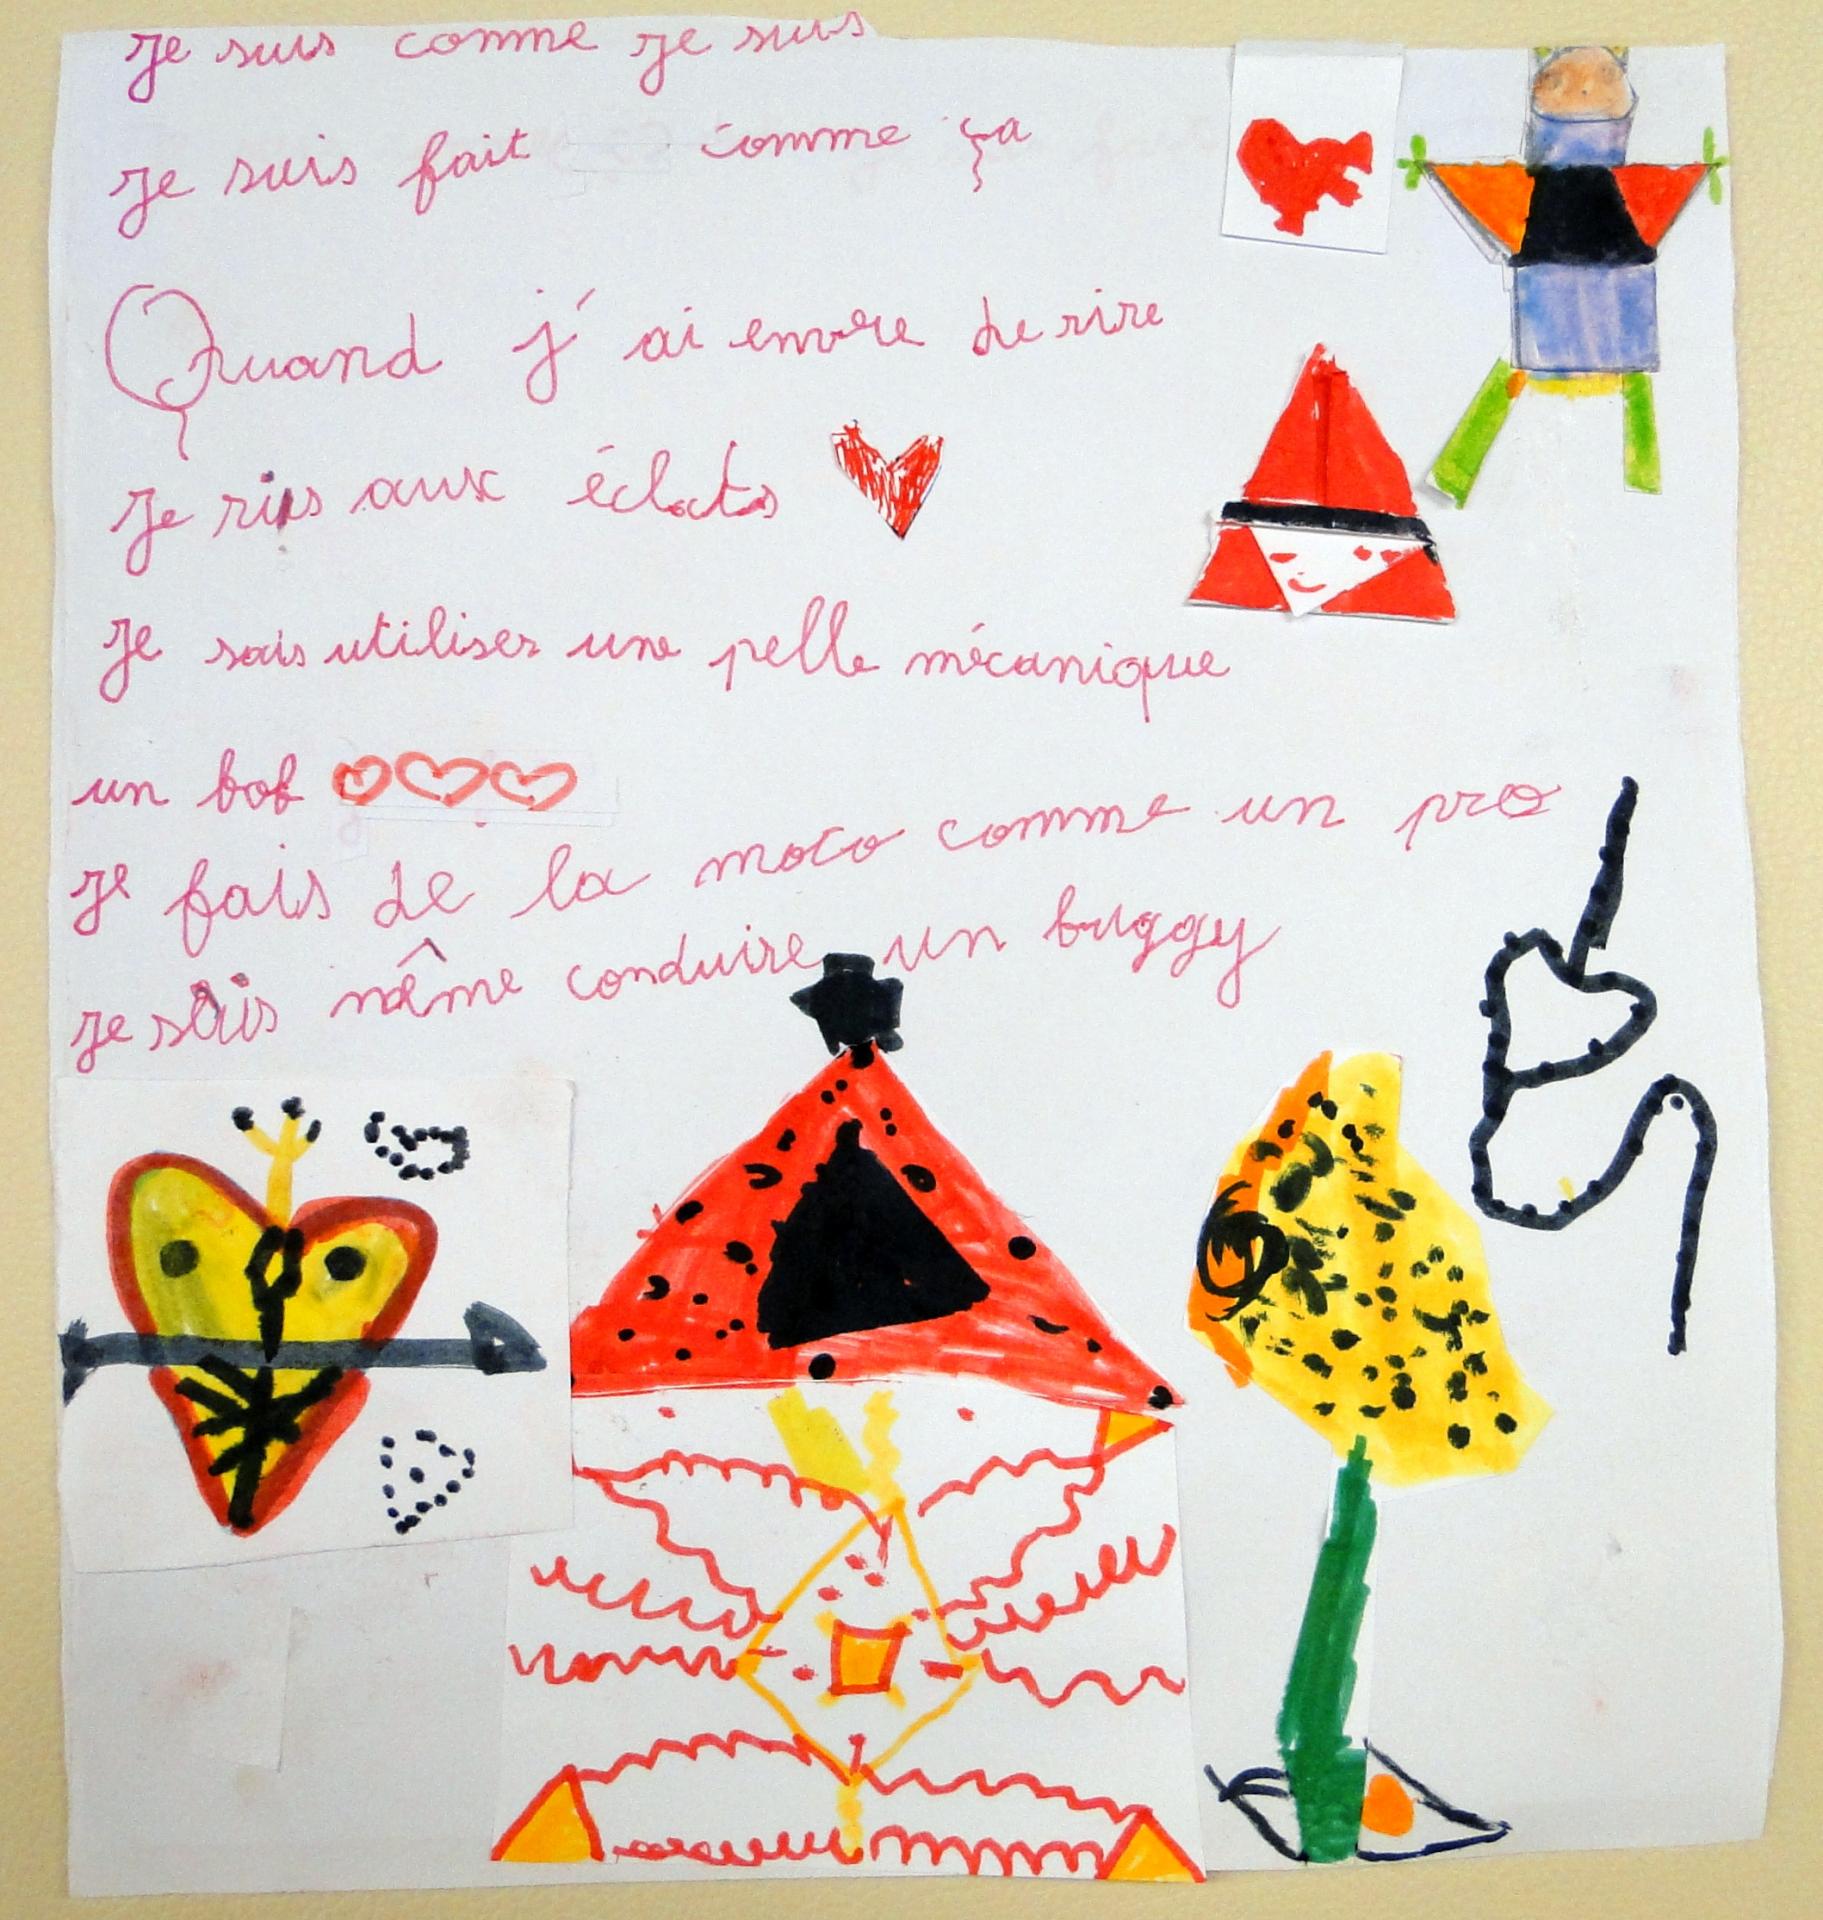 Je suis comme je suis
Je suis fait comme ça
Quand j'ai envie de rire
Je ris aux éclats
Je sais utiliser une pelle mécanique
un bob
Je fais de la moto comme un pro
Je sais même conduire un buggy